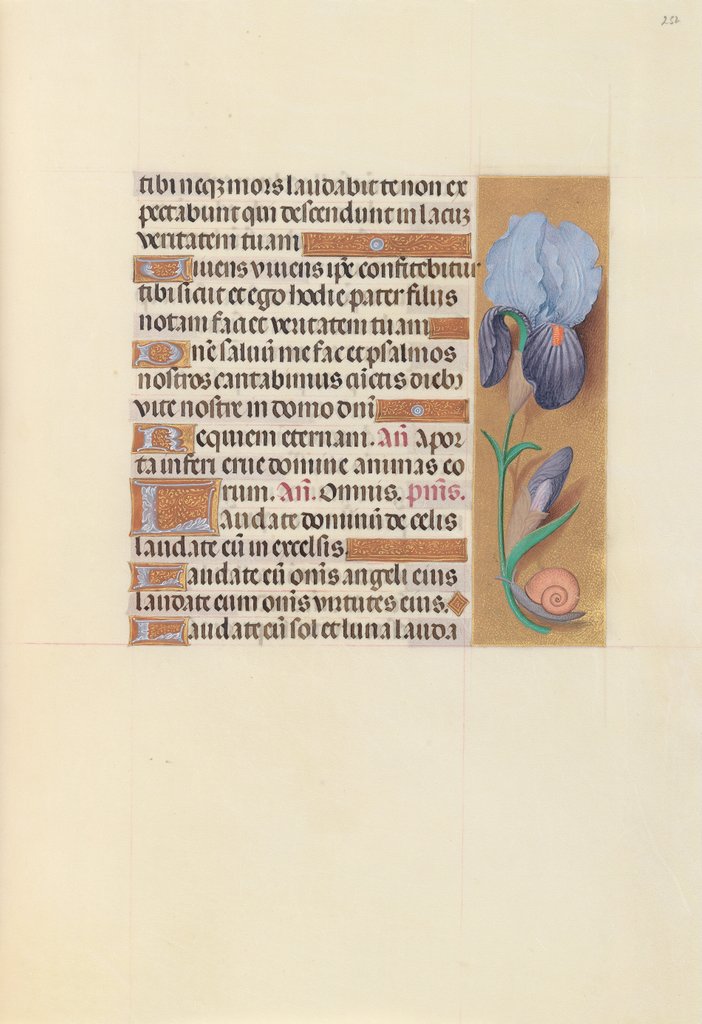 252
tibi neqꝫ mors laudabit te non ex
pectabunt qui descendunt in lacūz
veritatem tuam
Uiuens viuens ip̄e confitebitur
tibi sicut et ego hodie pater filiis
notam faciet veritatem tuam
Dn̄e saluū me fac et psalmos
nostros cantabimus cūctis dieb⁹
vite nostre in domo dn̄i
Requiem eternam. An̄ A por
ta inferi erue domine animas eo
rum. An̄. Omnis. pm̄s.
Laudate dominū de celis
laudate eū in excelsis.
Laudate eū om̄s angeli eius
laudate eum om̄s virtutes eius.
Laudate eū sol et luna lauda